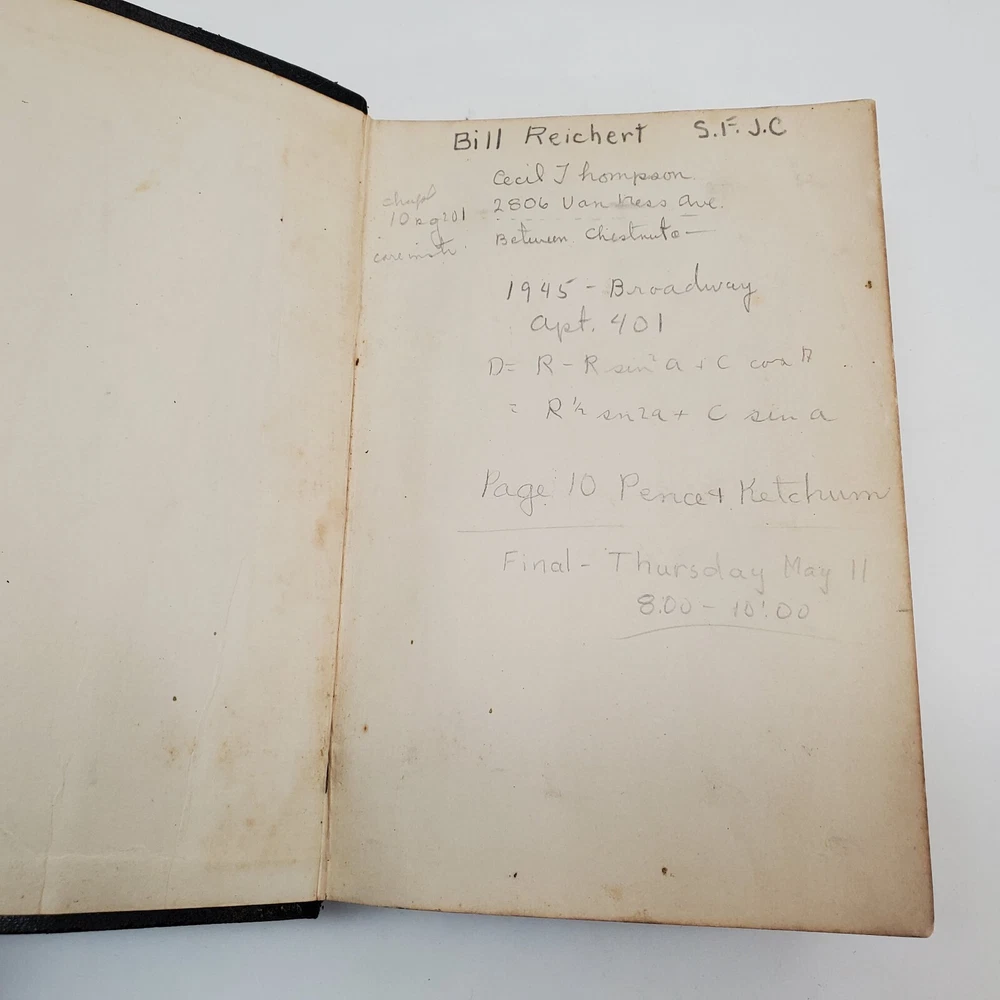 Bill Reichert S.F.J.C
Cecil Thompson
2806 Van Ness Ave.
Between Chestnuto —
10 pg 201
1945 - Broadway
Apt. 401
D= R - R sin² a + C cos
= R ½ sn 2a + C sin a
Page 10 Pence & Ketchum
Final - Thursday May 11
8:00 - 10:00